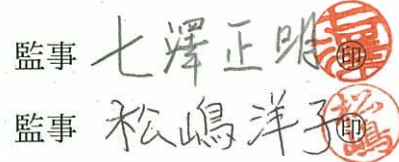 監事 七澤正明 ㊞
監事 松嶋洋子 ㊞